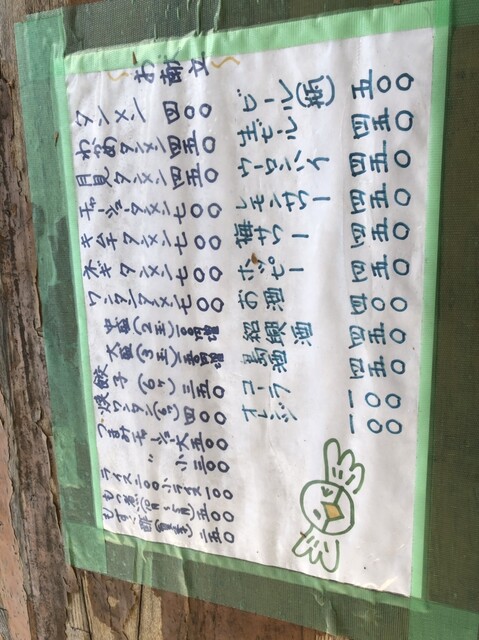 お献立
タンメン 四〇〇
わかめタンメン 四五〇
月見タンメン 四五〇
チャーシュータンメン 七〇〇
キムチタンメン 七〇〇
ネギタンメン 七〇〇
ワンタンタンメン 七〇〇
中盛(2玉) 円増
大盛(3玉) 円増
餃子(6ヶ) 三五〇
焼ワンタン(6ヶ) 四〇〇
つまみチャーシュー大 五〇〇
〃 小 三〇〇
ライス 二〇〇 小ライス 一〇〇
もつ煮(10月〜5月) 五〇〇
もずく酢 二五〇
ビール(瓶) 五〇〇
生ビール 四五〇
ウーロンハイ 四五〇
レモンサワー 四五〇
梅サワー 四五〇
ホッピー 四五〇
お酒 四〇〇
紹興酒 四五〇
島酒 四五〇
コーラ 二〇〇
オレンジ 二〇〇